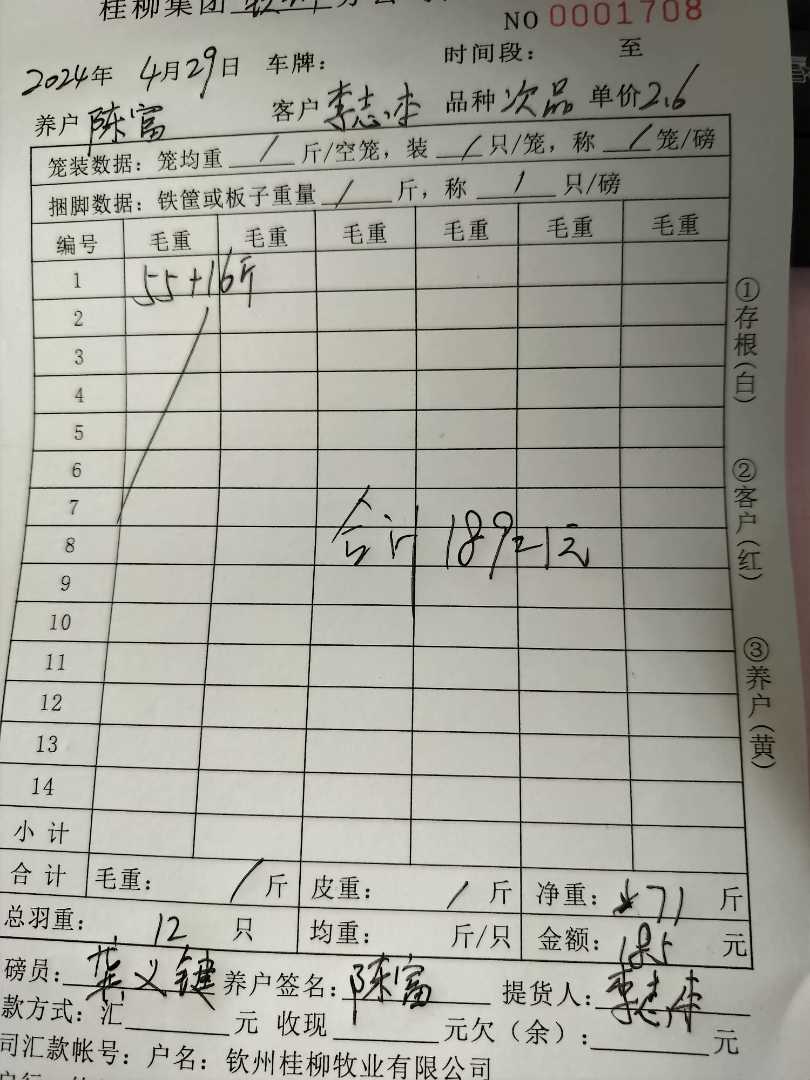 桂柳集团 钦州 分公司
NO 0001708
2024年 4月29日 车牌： 时间段： 至
养户 陈富 客户 李志 品种 次品 单价2.6
笼装数据：笼均重 / 斤/空笼，装 / 只/笼，称 / 笼/磅
捆脚数据：铁筐或板子重量 / 斤，称 / 只/磅
编号 毛重 毛重 毛重 毛重 毛重 毛重
1 55+16斤
2
3
4
5
6
7
8 合计 189 元
9
10
11
12
13
14
小计
合计 毛重： / 斤 皮重： / 斤 净重： 71 斤
总羽重： 12 只 均重： 斤/只 金额： 185 元
磅员： 义键 养户签名：陈富 提货人：李志
款方式：汇 元 收现 元欠（余）： 元
司汇款帐号：户名：钦州桂柳牧业有限公司
①存根（白）
②客户（红）
③养户（黄）